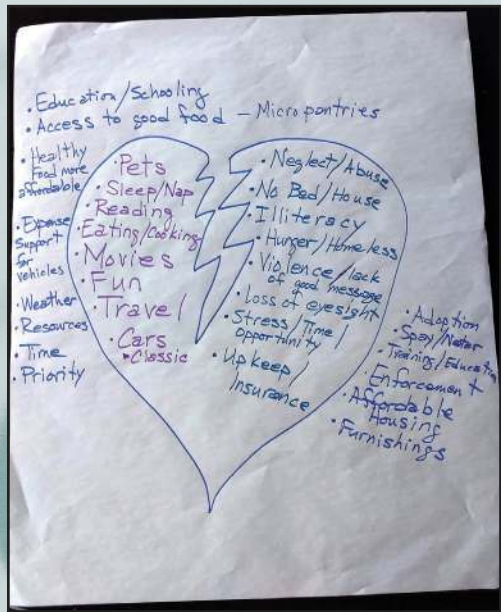 • Education/Schooling
• Access to good food – Micropantries
• Healthy
Food more
affordable
• Expense
Support
for
vehicles
• Weather
• Resources
• Time
• Priority
• Pets
• Sleep/Nap
• Reading
Eating/Cooking
• Movies
• Fun
• Travel
• Cars
▸Classic
• Neglect/Abuse
• No Bed/House
• Illiteracy
• Hunger/Homeless
• Violence/lack
of good message
• Loss of eyesight
• Stress/Time/
Opportunity
• Upkeep/
Insurance
• Adoption
• Spay/Neter
• Training/Education
• Enforcement
• Affordable
Housing
• Furnishings